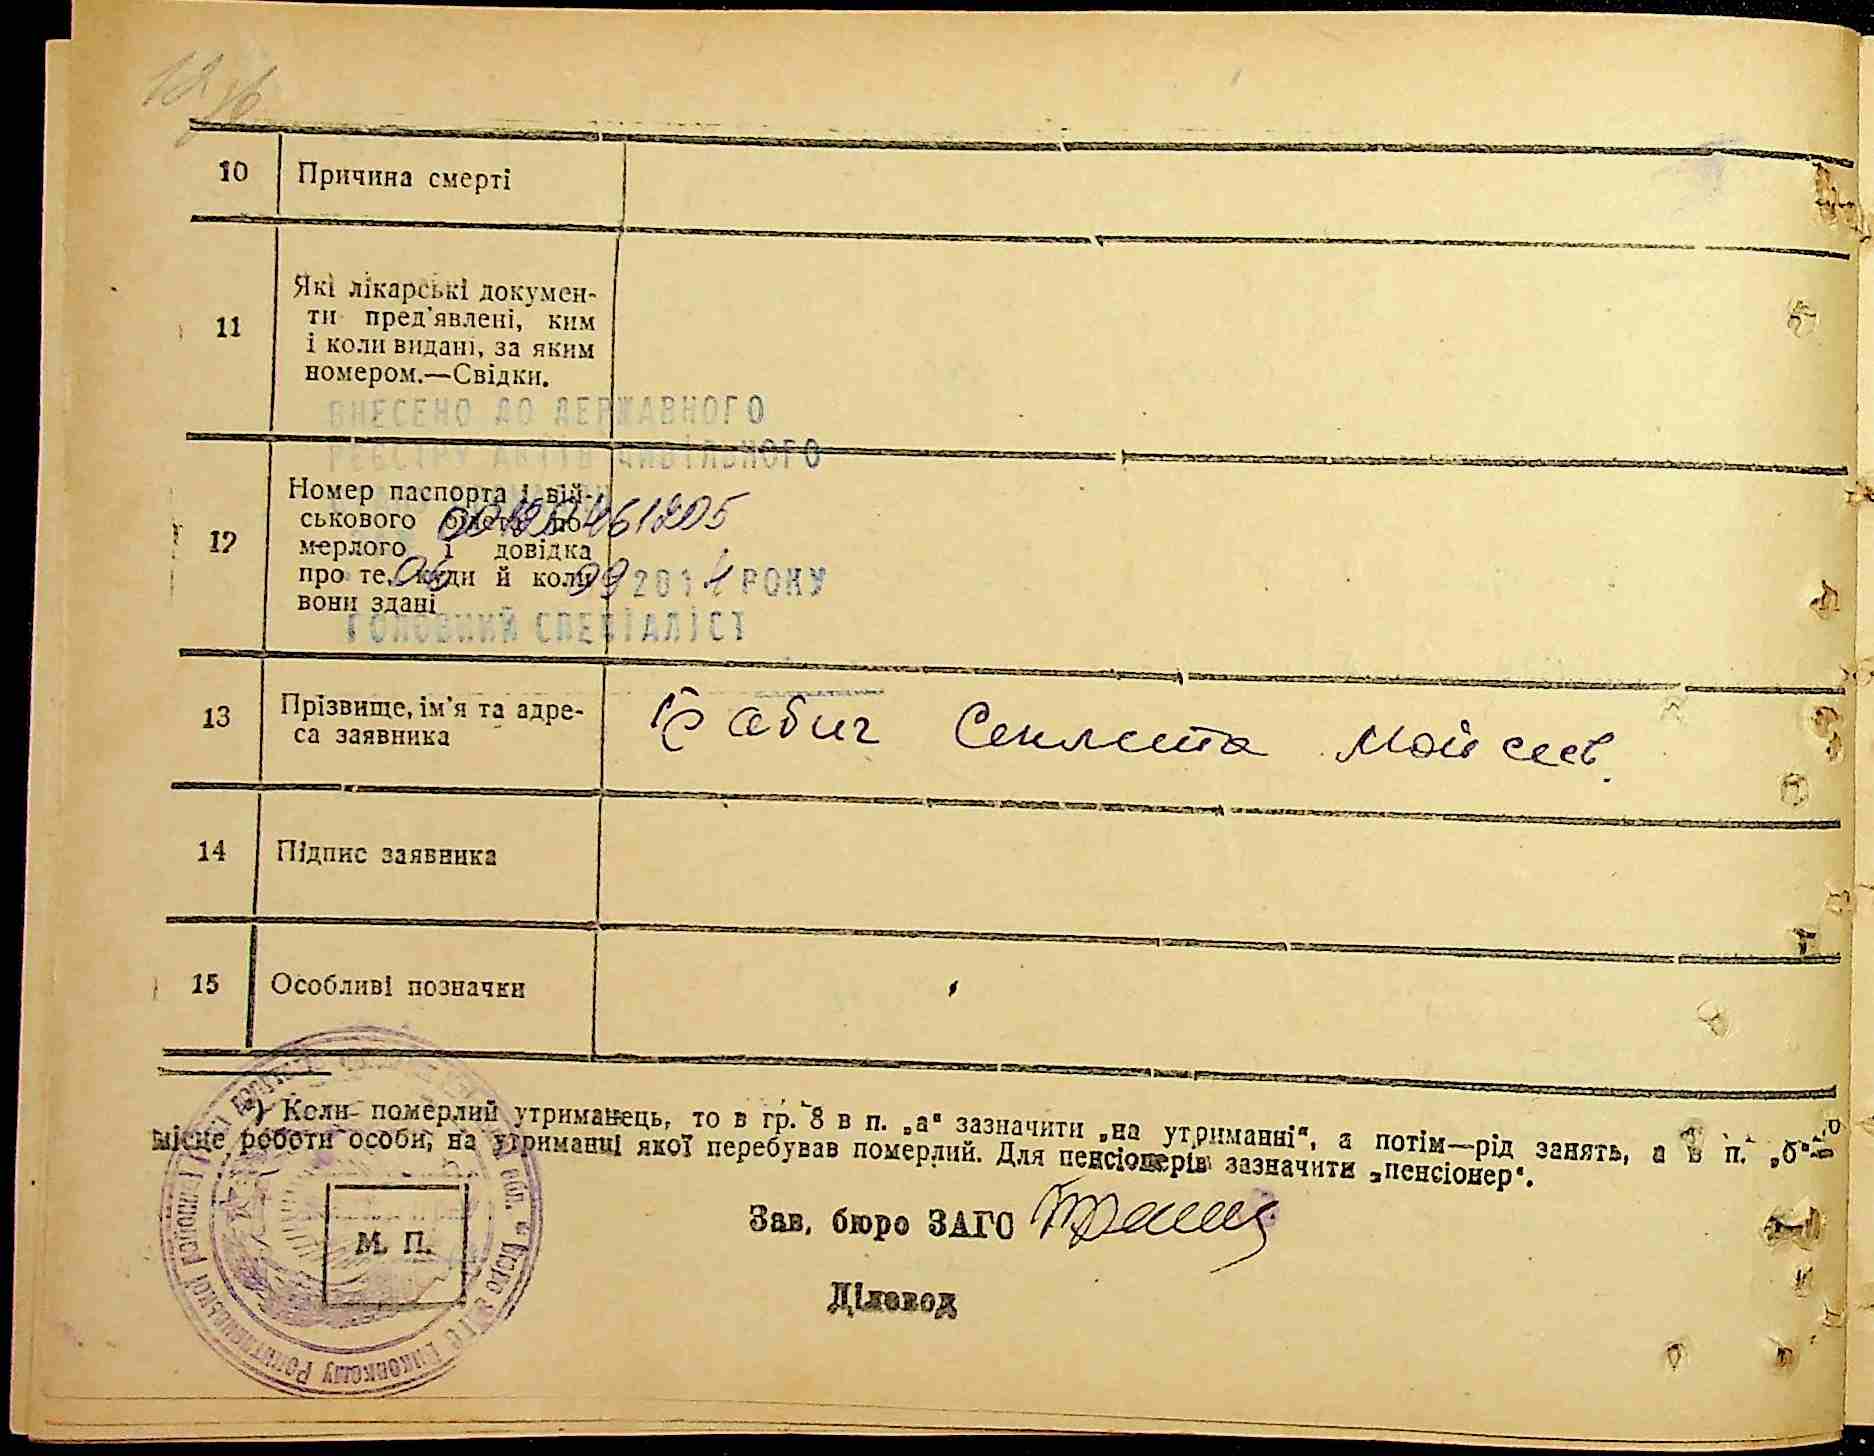 10 Причина смерті
11 Які лікарські докумен-
ти пред'явлені, ким
і коли видані, за яким
номером.—Свідки.
ВНЕСЕНО ДО ДЕРЖАВНОГО
РЕЄСТРУ АКТІВ ЦИВІЛЬНОГО
12 Номер паспорта і вій-
ськового білета по-
мерлого і довідка
про те, куди й коли
вони здані
06 09 2014 РОКУ
ГОЛОВНИЙ СПЕЦІАЛІСТ
13 Прізвище, ім'я та адре-
са заявника
Бабич Мойсеев.
14 Підпис заявника
15 Особливі позначки
*) Коли померлий утриманець, то в гр. 8 в п. „а“ зазначити „на утриманні“, а потім—рід занять, а в п. „б“—
місце роботи особи, на утриманці якої перебував померлий. Для пенсіонерів зазначити „пенсіонер“.
Зав. бюро ЗАГС
М. П.
Діловод